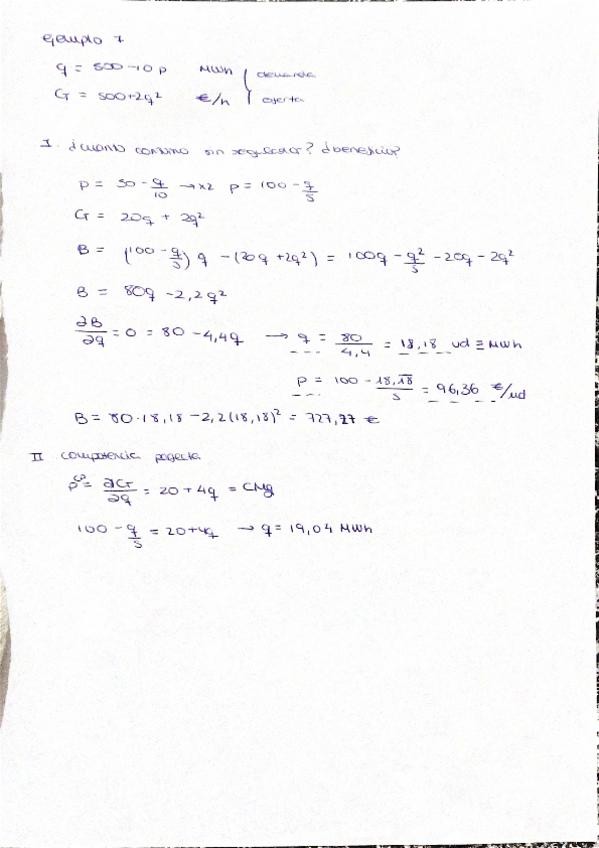 ejemplo 7
q = 500 - 10p MWh demanda
CT = 500 + 2q² €/h oferta
I. ¿cuanto consumo sin regulador? ¿beneficio?
p = 50 - q/10 → x2 p = 100 - q/5
CT = 20q + 2q²
B = (100 - q/5) q - (20q + 2q²) = 100q - q²/5 - 20q - 2q²
B = 80q - 2,2q²
∂B/∂q = 0 = 80 - 4,4q → q = 80/4,4 = 18,18 ud ≡ MWh
p = 100 - 18,18/5 = 96,36 €/ud
B = 80·18,18 - 2,2(18,18)² = 727,27 €
II competencia perfecta
p^cp = ∂CT/∂q = 20 + 4q = CMg
100 - q/5 = 20 + 4q → q = 19,04 MWh